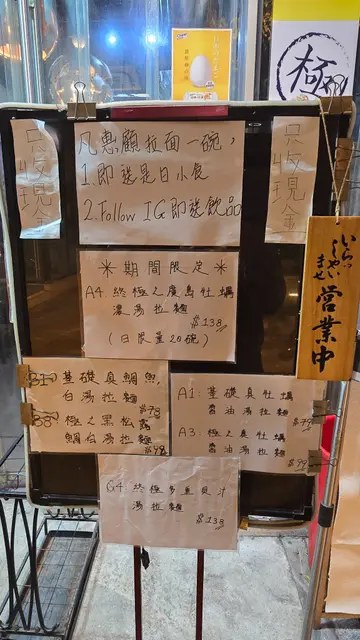 極
只收現金
凡惠顧拉面一碗，
1.即送是日小食
2.Follow IG即送飲品
只收現金
いらっ
しゃい
ませ
營業中
*期間限定*
A4.終極之廣島牡蠣
濃湯拉麵
$138
(日限量20碗)
B1:基礎真鯛魚
白湯拉麵
$78
B3:極之黑松露
鯛白湯拉麵
$98
A1:基礎真牡蠣
醬油湯拉麵
$79
A3:極之真牡蠣
醬油湯拉麵
$99
G4.終極多重魚汁
湯拉麵
$138